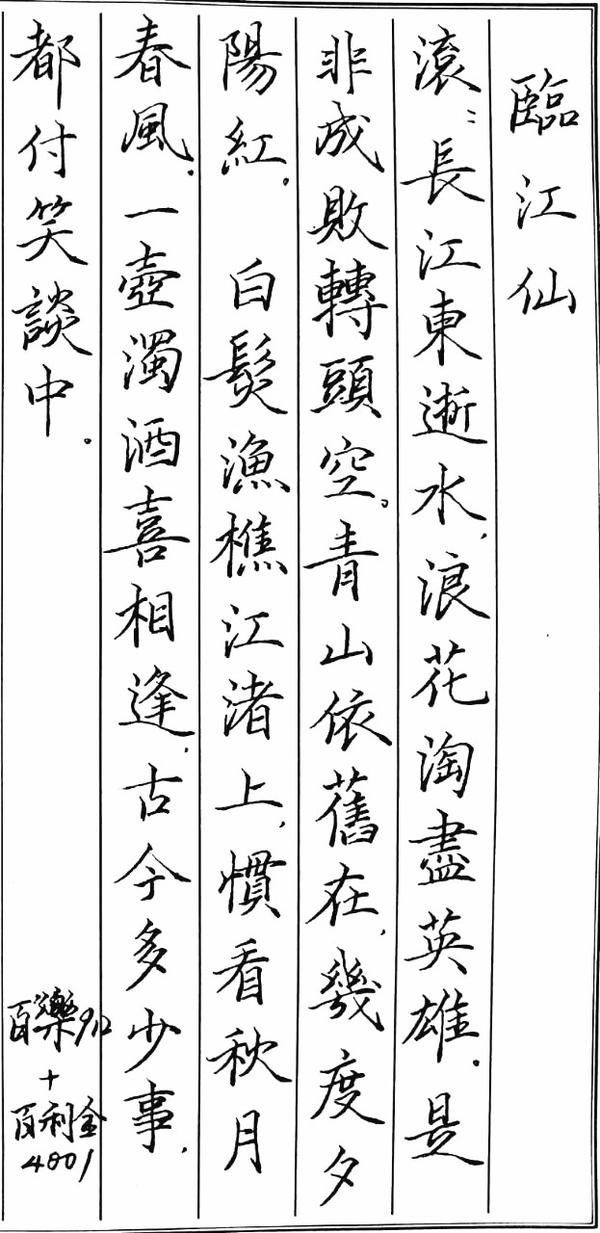 臨江仙
滾：長江東逝水，浪花淘盡英雄。是
非成敗轉頭空。青山依舊在，幾度夕
陽紅。 白髮漁樵江渚上，慣看秋月
春風。一壺濁酒喜相逢，古今多少事，
都付笑談中。
百樂912
+
百利金
4001